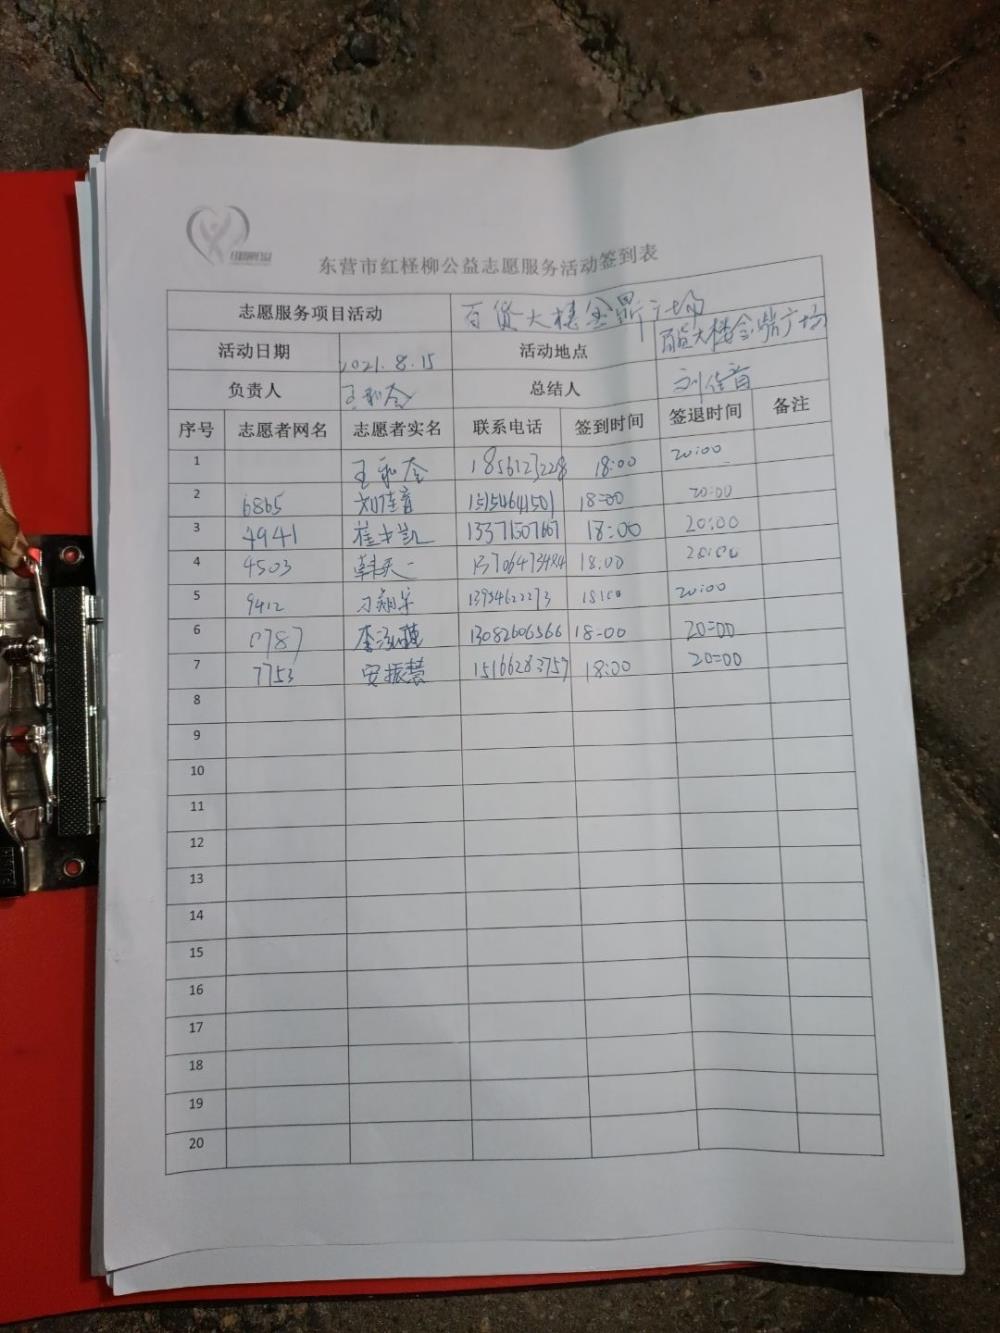 东营市红柽柳公益志愿服务活动签到表
志愿服务项目活动 百货大楼金鼎广场
活动日期 2021.8.15 活动地点 百货大楼金鼎广场
负责人 总结人 刘佳音
序号 志愿者网名 志愿者实名 联系电话 签到时间 签退时间 备注
1 18:00 20:00
2 6865 刘佳音 15154641501 18:00 20:00
3 4941 13371507667 18:00 20:00
4 4503 韩天一 18:00
5 9412 13954622273 20:00
6 0787 13082606566 18:00 20:00
7 7753 安振慧 15166283757 18:00 20:00
8
9
10
11
12
13
14
15
16
17
18
19
20